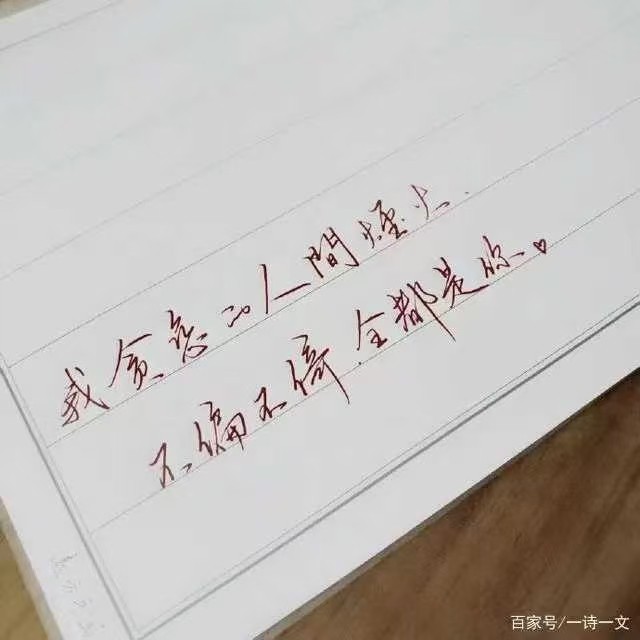 我贪恋的人間煙火.
不偏不倚.全都是你.♥
百家号/一诗一文